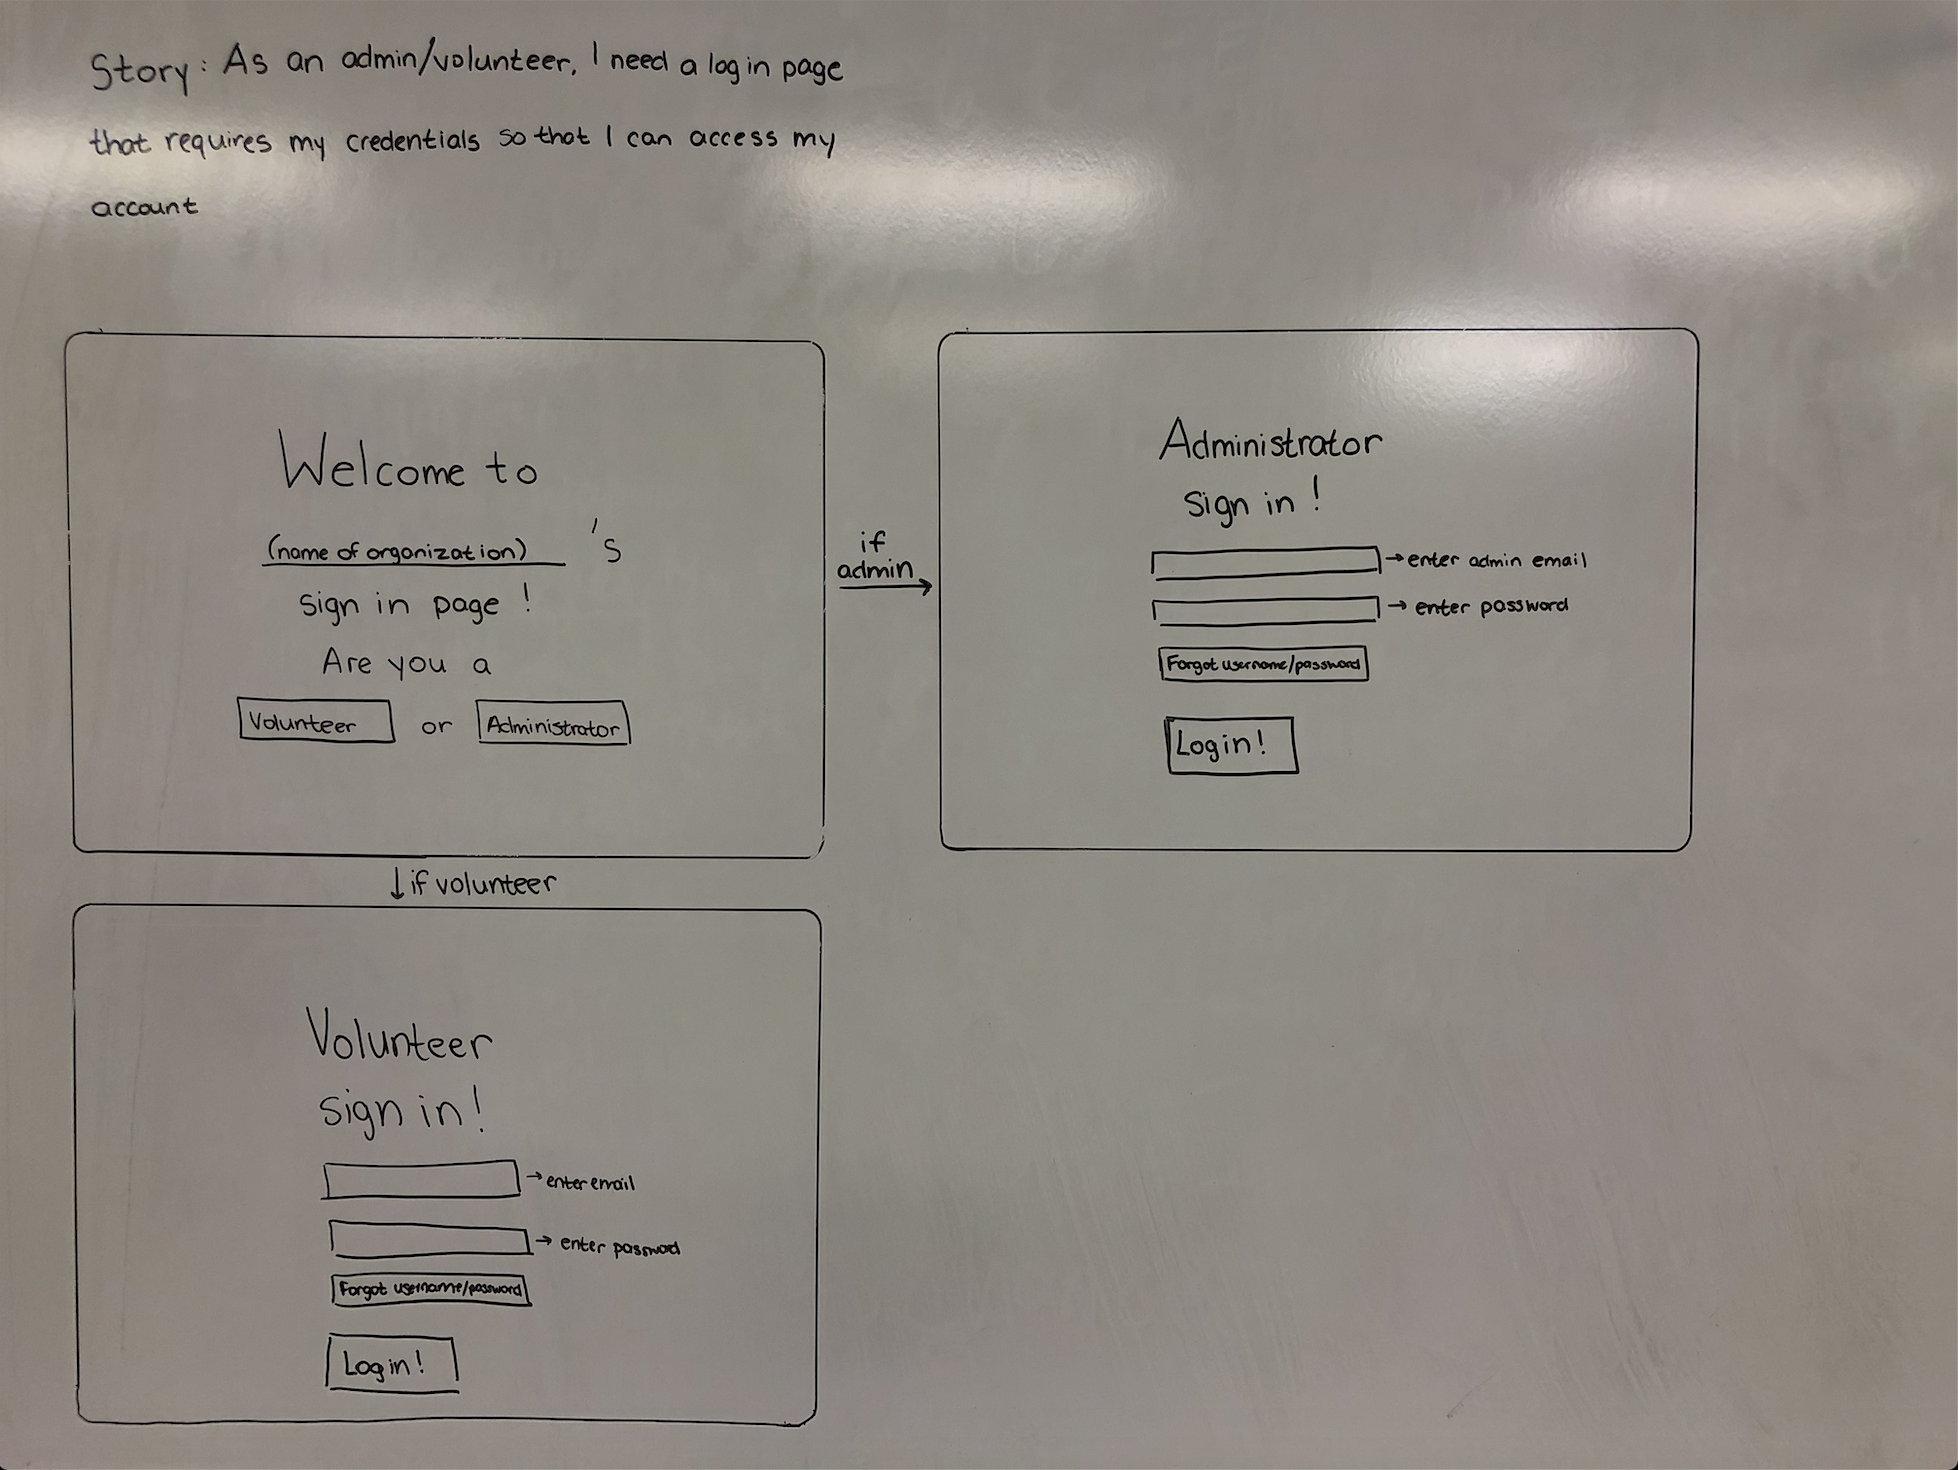 Story: As an admin/volunteer, I need a log in page
that requires my credentials so that I can access my
account
Welcome to
(name of organization) 's
sign in page !
Are you a
Volunteer or Administrator
if
admin
Administrator
sign in !
→ enter admin email
→ enter password
Forgot username/password
Login!
↓ if volunteer
Volunteer
sign in!
→ enter email
→ enter password
Forgot username/password
Login!